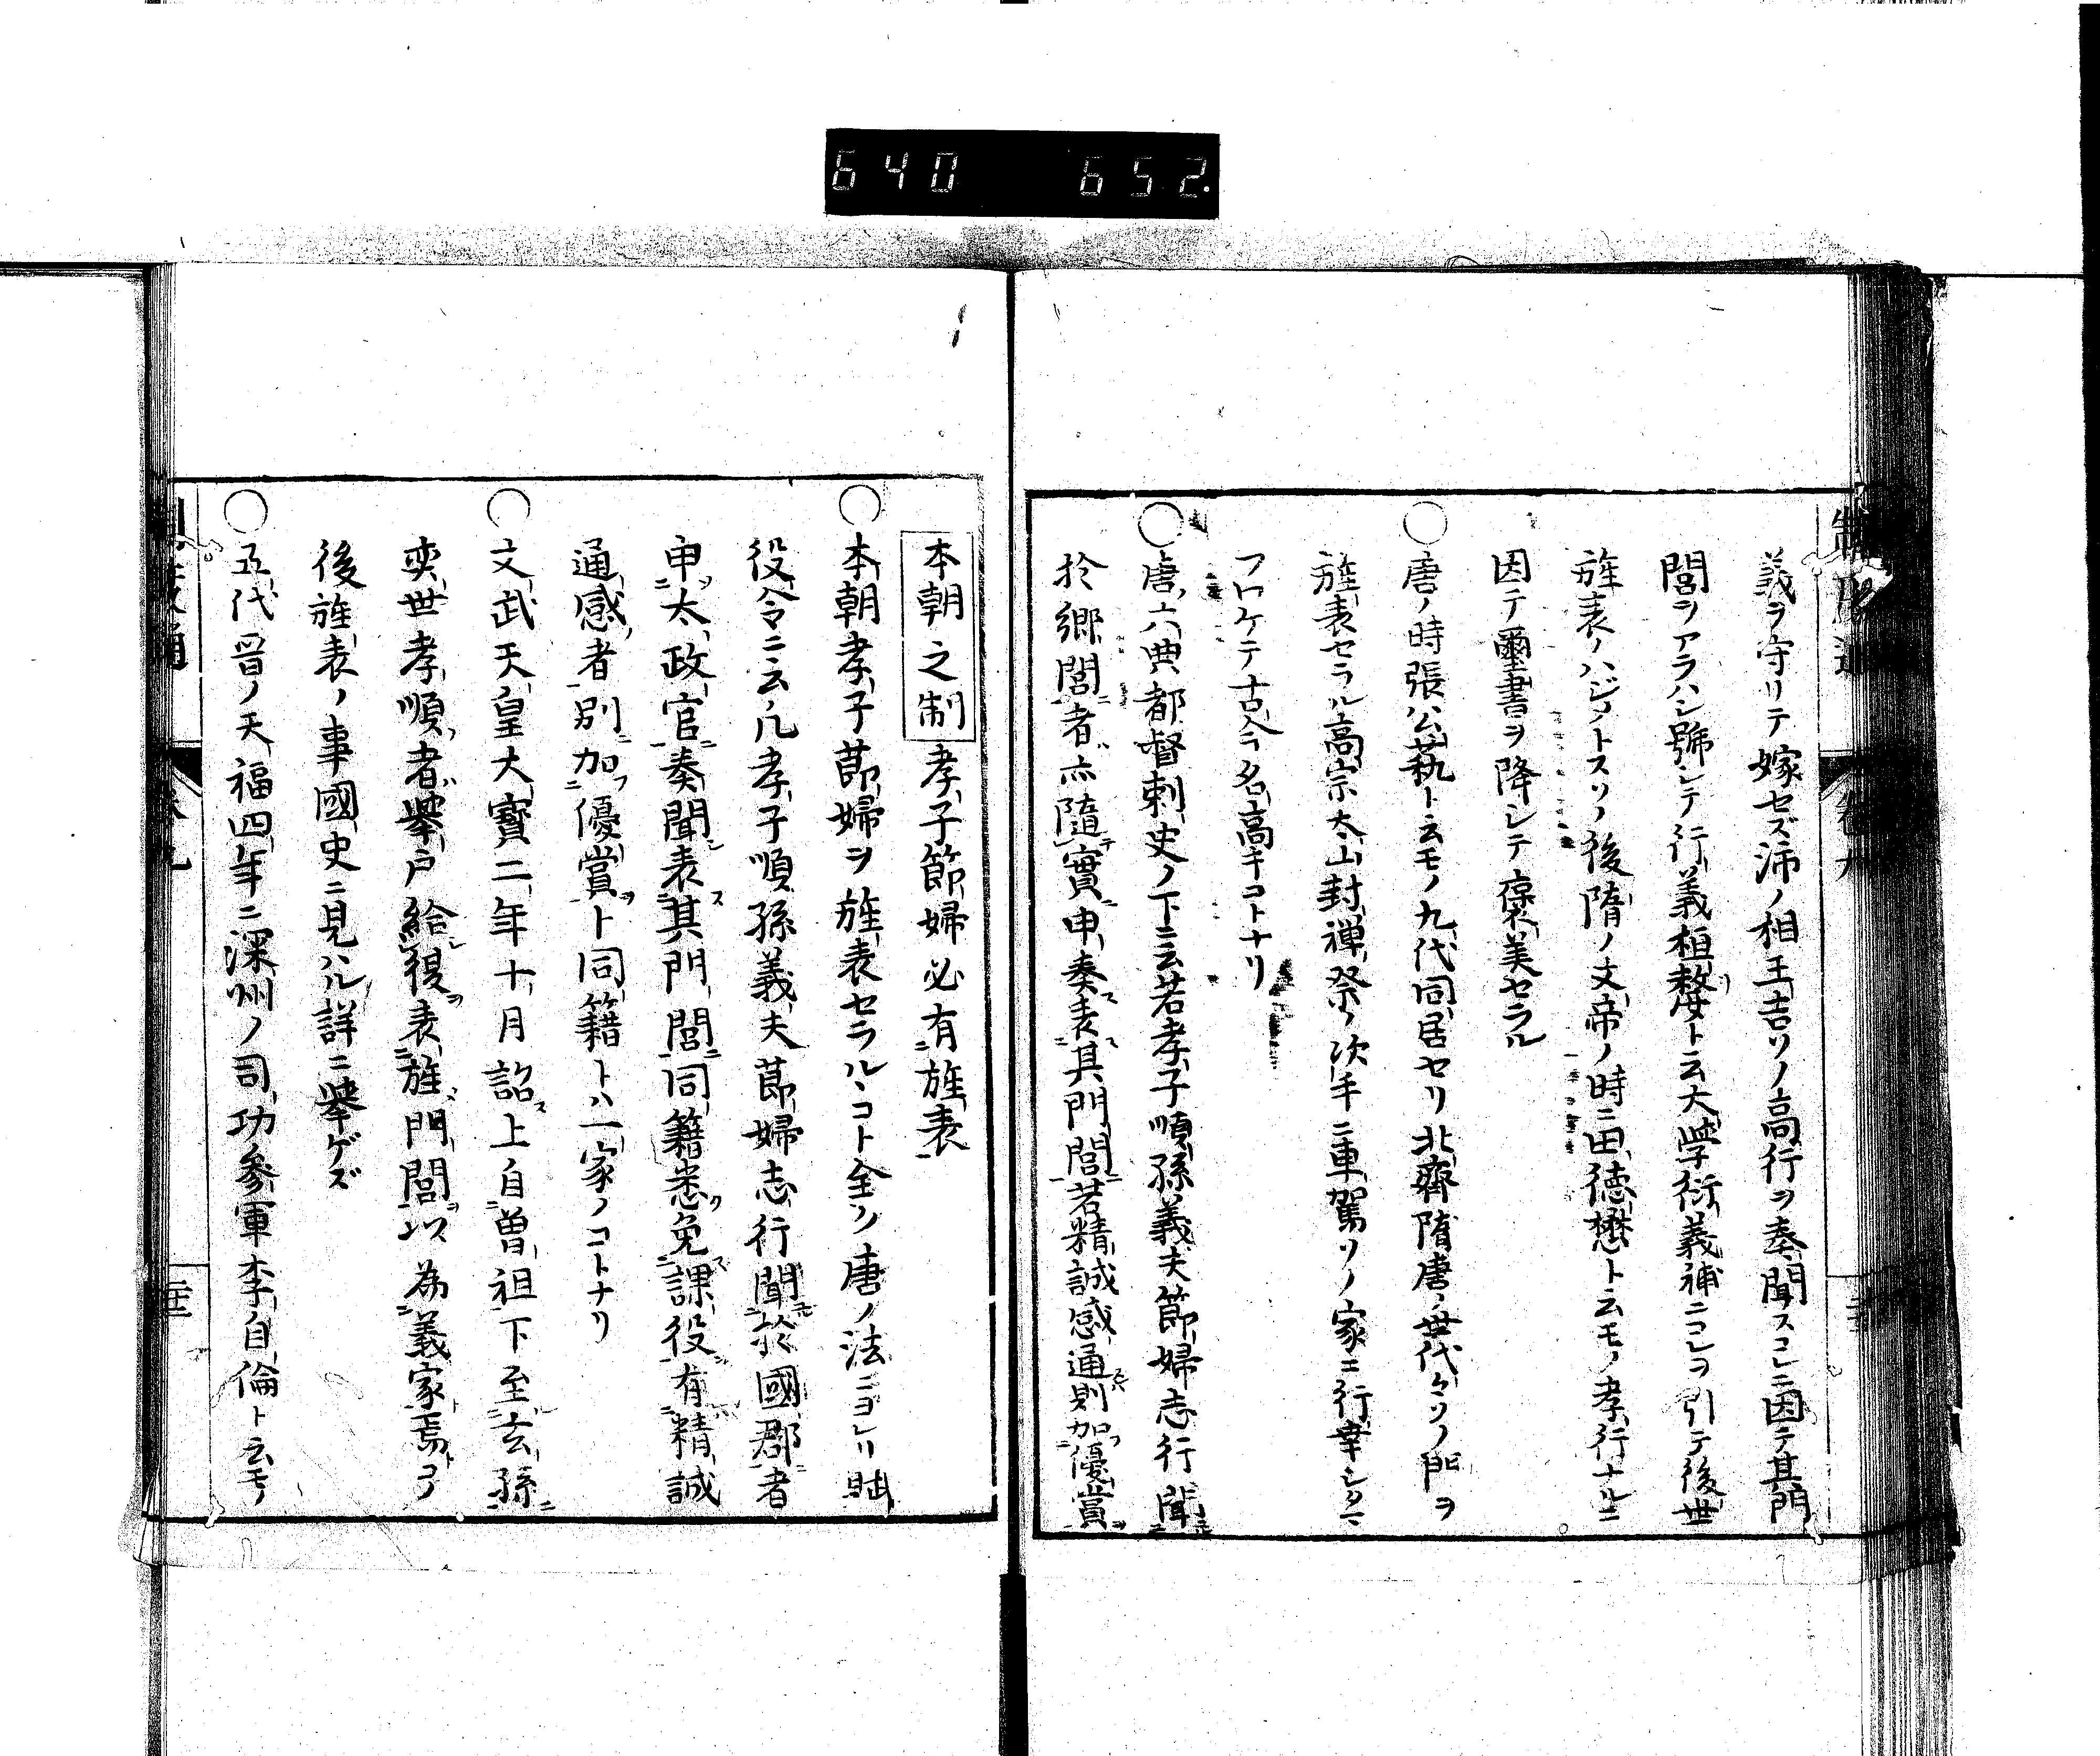 640 652.
義ヲ守リテ嫁セズ沛ノ相王吉ソノ高行ヲ奏聞スコレニ因テ其門
閭ヲアラハシ號シテ行義桓嫠ト云大学衍義補ニコレヲ引テ後世
旌表ノハジメトスソノ後隋ノ文帝ノ時ニ田徳懋ト云モノ孝行ナルニ
因テ璽書ヲ降シテ褒美セラル
○唐ノ時張公藝ト云モノ九代同居セリ北齊隋唐ノ世代々ソノ門ヲ
旌表セラル高宗太山封禅祭ノ次手ニ車駕ソノ家ニ行幸シタマ
フロケテ古今ニ名高キコトナリ
○唐ノ六典都督刺史ノ下ニ云若孝子順孫義夫節婦志行聞
於郷閭者亦隨實申奏表其門閭若精誠感通則加優賞
本朝之制 孝子節婦必有旌表
○本朝孝子節婦ヲ旌表セラルヽコト全ク唐ノ法ニヨレリ賦
役令ニ云凡孝子順孫義夫節婦志行聞於國郡者
申太政官奏聞表其門閭同籍悉免課役有精誠
通感者別加優賞ト同籍トハ一家ノコトナリ
○文武天皇大寳二年十月詔上自曽祖下至玄孫
奕世孝順者舉戸給復表旌門閭以為義家焉トコノ
後旌表ノ事國史ニ見ハル詳ニ舉ゲズ
○五代晉ノ天福四年ニ深州ノ司功參軍李自倫ト云モノ